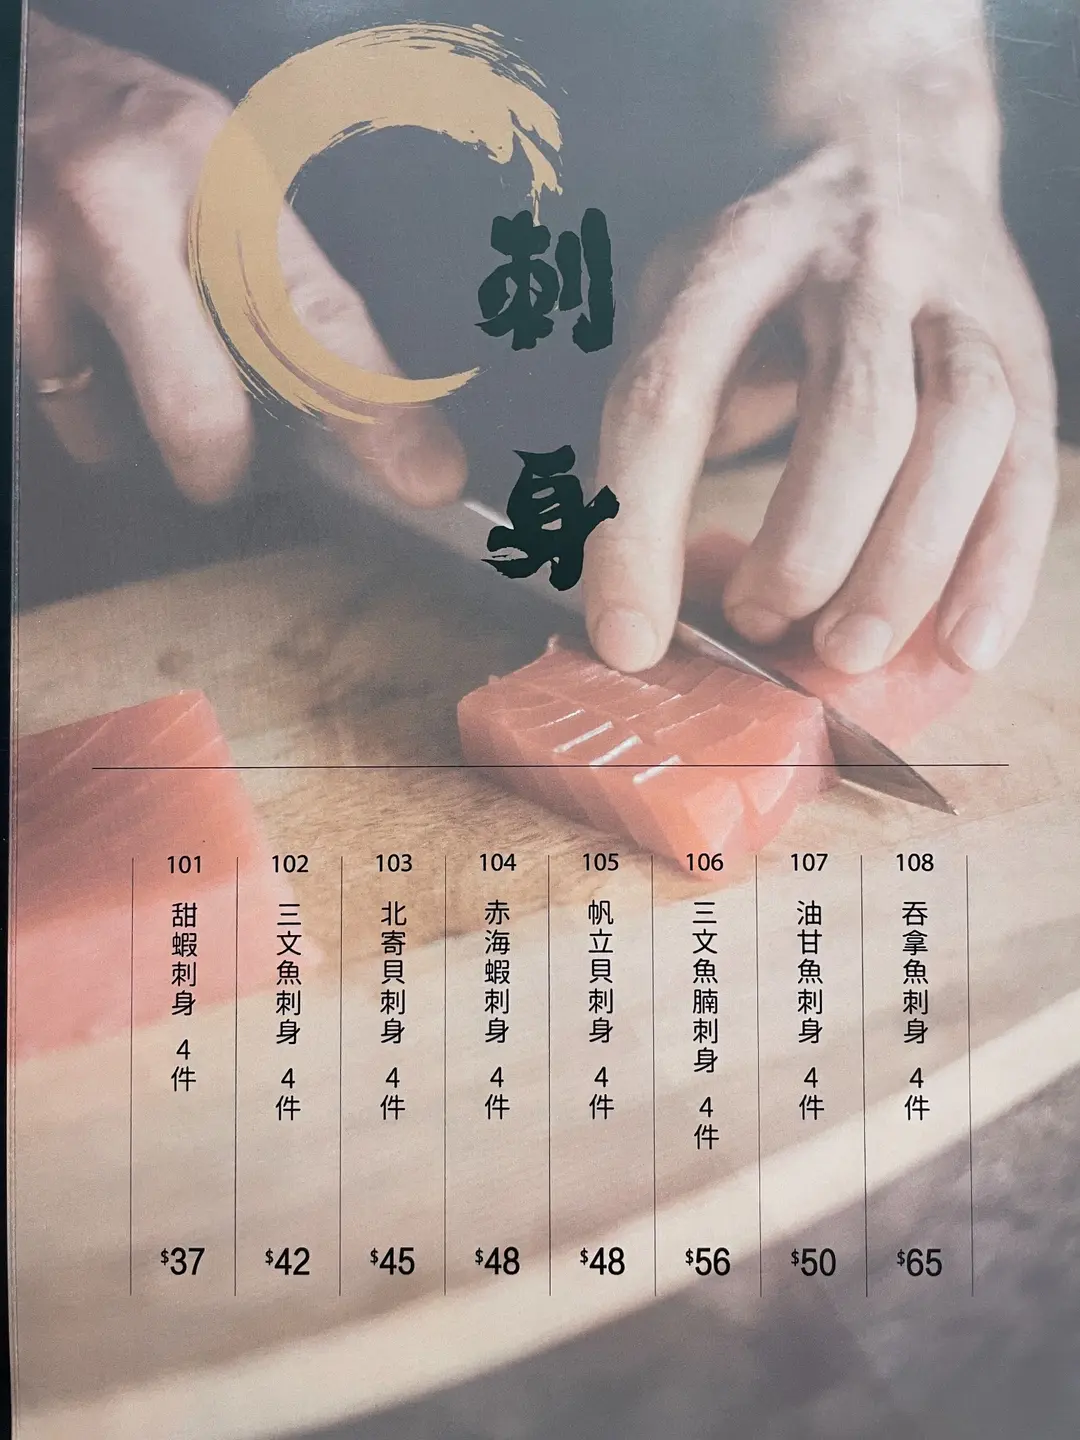 刺身
101
甜蝦刺身 4件
$37
102
三文魚刺身 4件
$42
103
北寄貝刺身 4件
$45
104
赤海蝦刺身 4件
$48
105
帆立貝刺身 4件
$48
106
三文魚腩刺身 4件
$56
107
油甘魚刺身 4件
$50
108
吞拿魚刺身 4件
$65